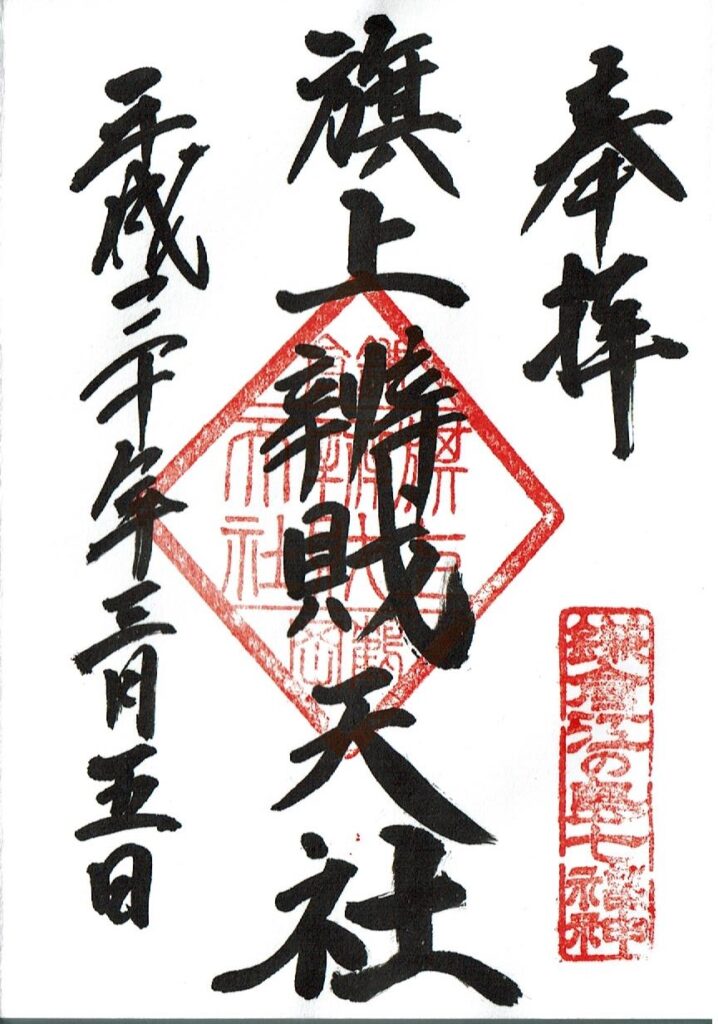 奉拝
鎌倉江の島七福神
旗上辨財天社
平成三十年三月五日